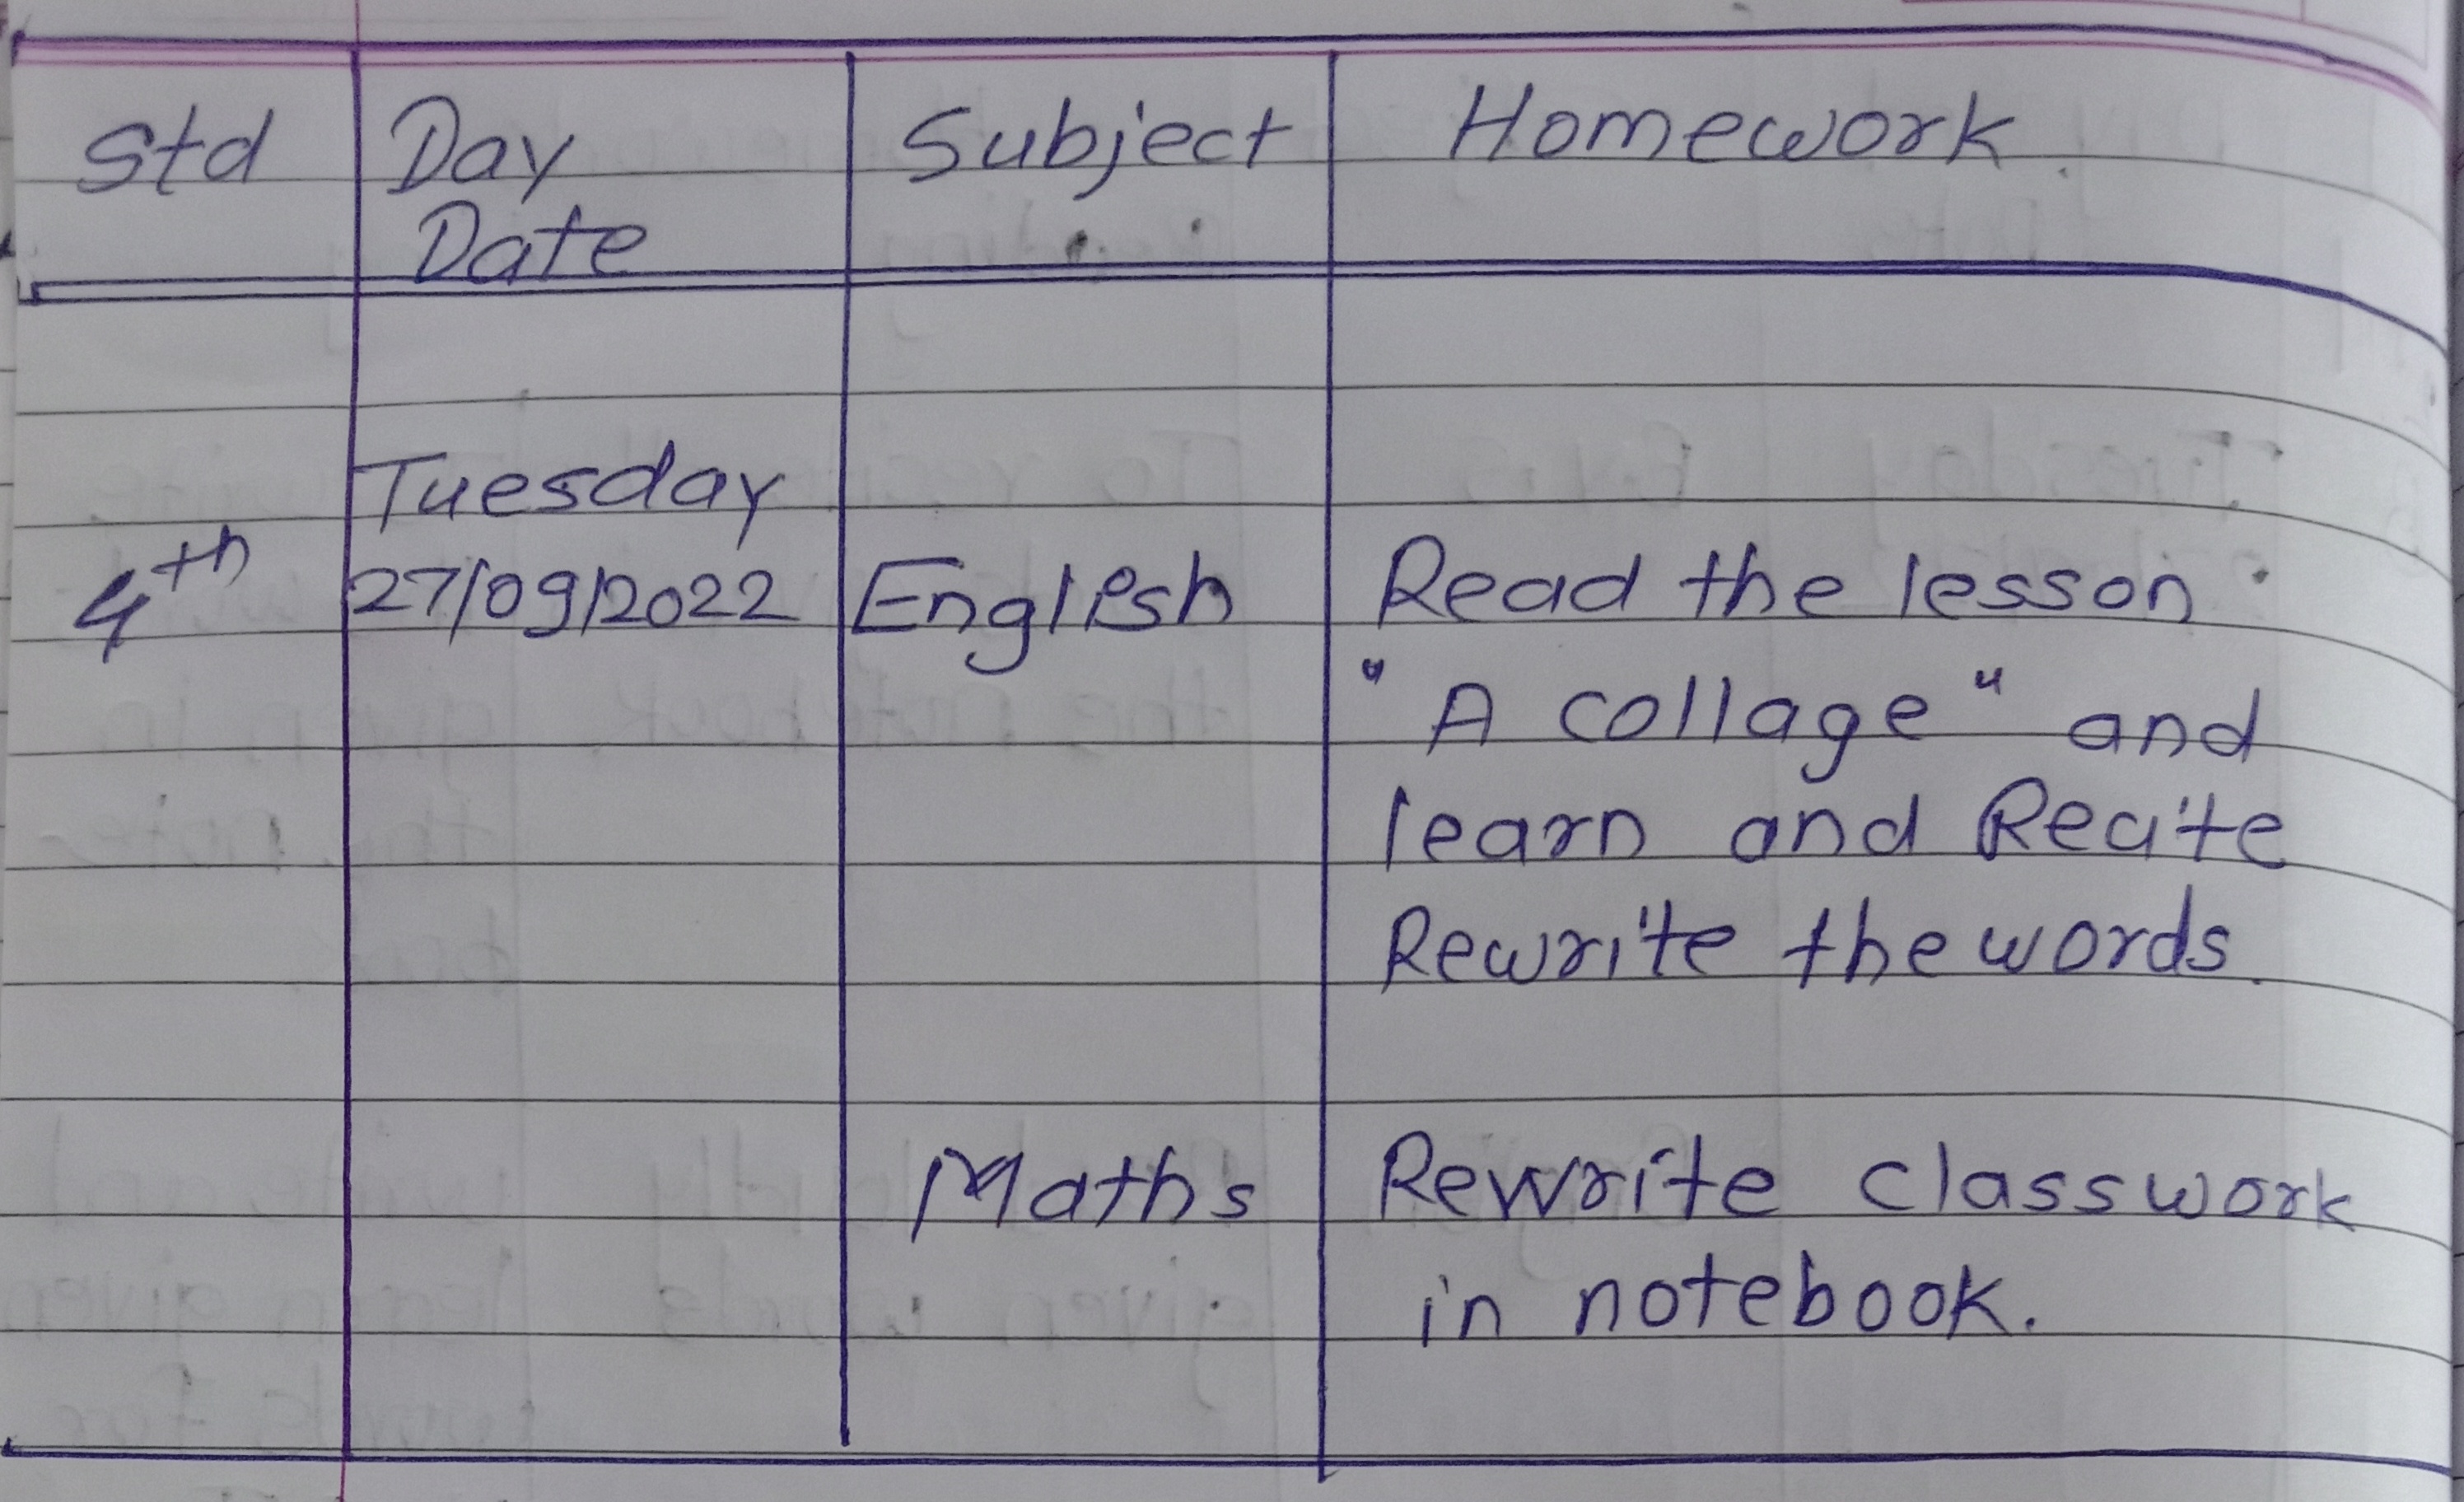 Std Day Subject Homework.
Date
Tuesday
4th 27/09/2022 English Read the lesson
"A collage" and
learn and Recite
Rewrite the words.
Maths Rewrite classwork
in notebook.